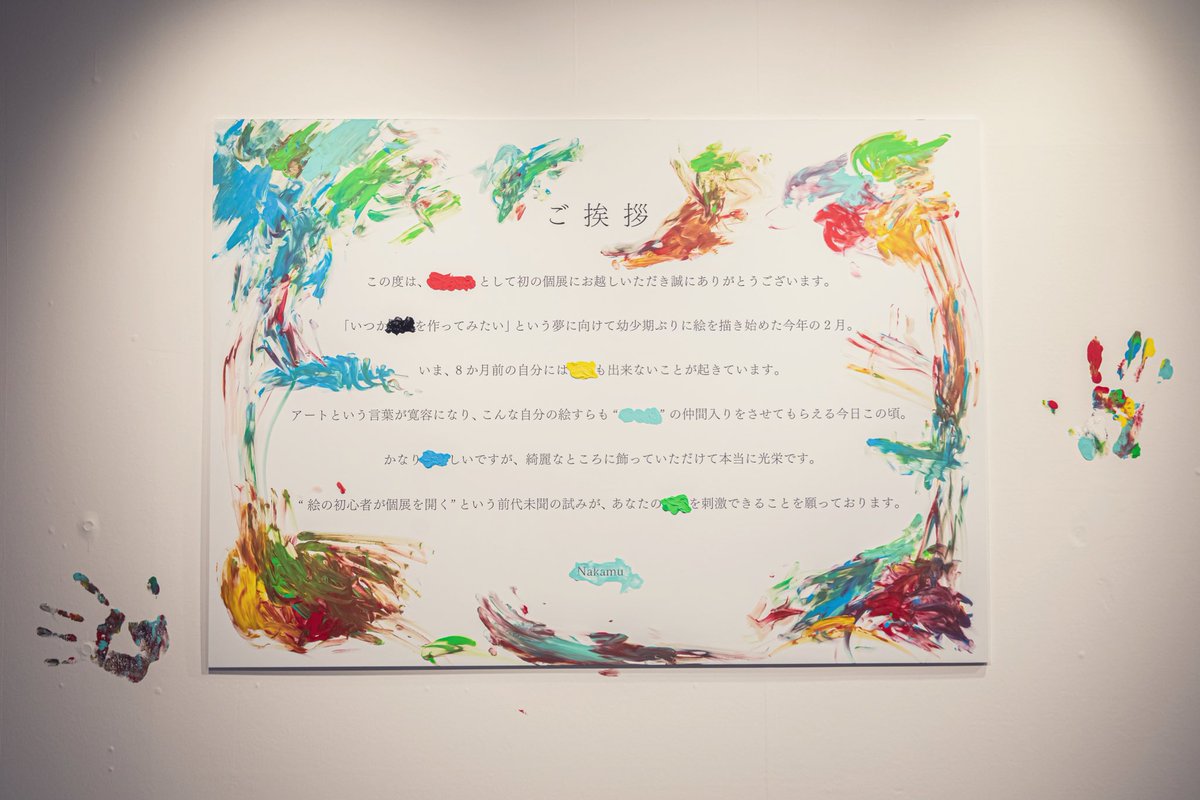 ご挨拶
この度は、として初の個展にお越しいただき誠にありがとうございます。
「いつかを作ってみたい」という夢に向けて幼少期ぶりに絵を描き始めた今年の2月。
いま、8か月前の自分にはも出来ないことが起きています。
アートという言葉が寛容になり、こんな自分の絵すらも“”の仲間入りをさせてもらえる今日この頃。
かなりしいですが、綺麗なところに飾っていただけて本当に光栄です。
“絵の初心者が個展を開く”という前代未聞の試みが、あなたのを刺激できることを願っております。
Nakamu